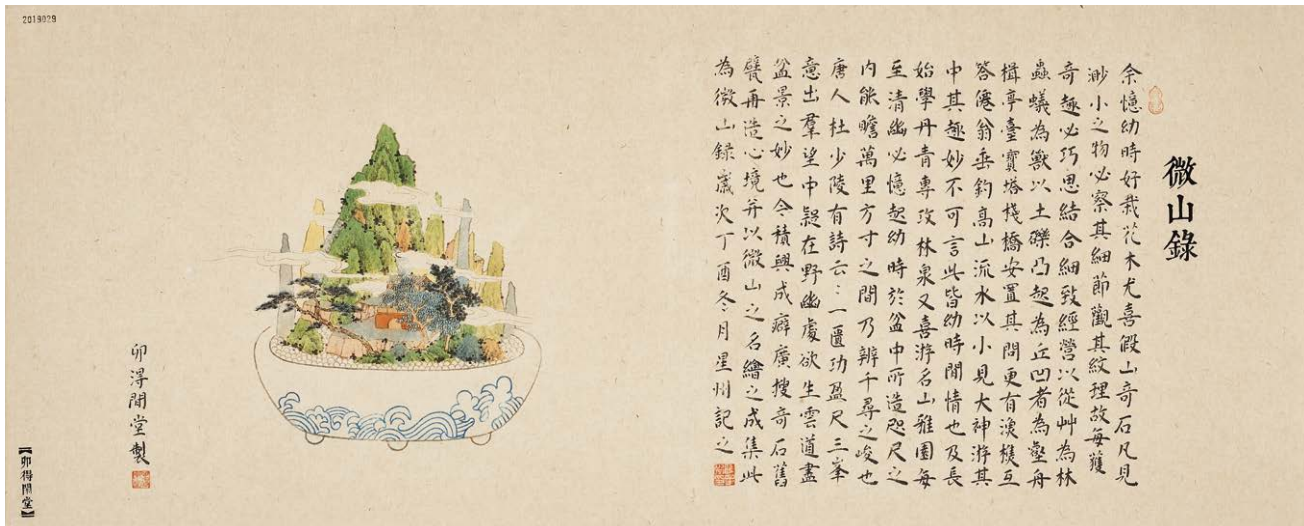 微山錄
余憶幼時好栽花木尤喜假山奇石凡見
渺小之物必察其細節觀其紋理故每獲
奇趣必巧思結合細致經營以從艸為林
蟲蟻為獸以土礫凸起為丘凹者為壑舟
楫亭臺寶塔棧橋安置其間更有漁樵互
答僊翁垂釣高山流水以小見大神游其
中其趣妙不可言此皆幼時閒情也及長
始學丹青專攻林泉又喜游名山雅園每
至清幽必憶起幼時於盆中所造咫尺之
內能瞻萬里方寸之間乃辨千尋之峻也
唐人杜少陵有詩云：一匱功盈尺三峯
意出羣望中疑在野幽處欲生雲道盡
盆景之妙也今積興成癖廣搜奇石舊
甓再造心境并以微山之名繪之成集此
為微山錄歲次丁酉冬月星州記之
卯淂閒堂製
【卯得閒堂】
2019029